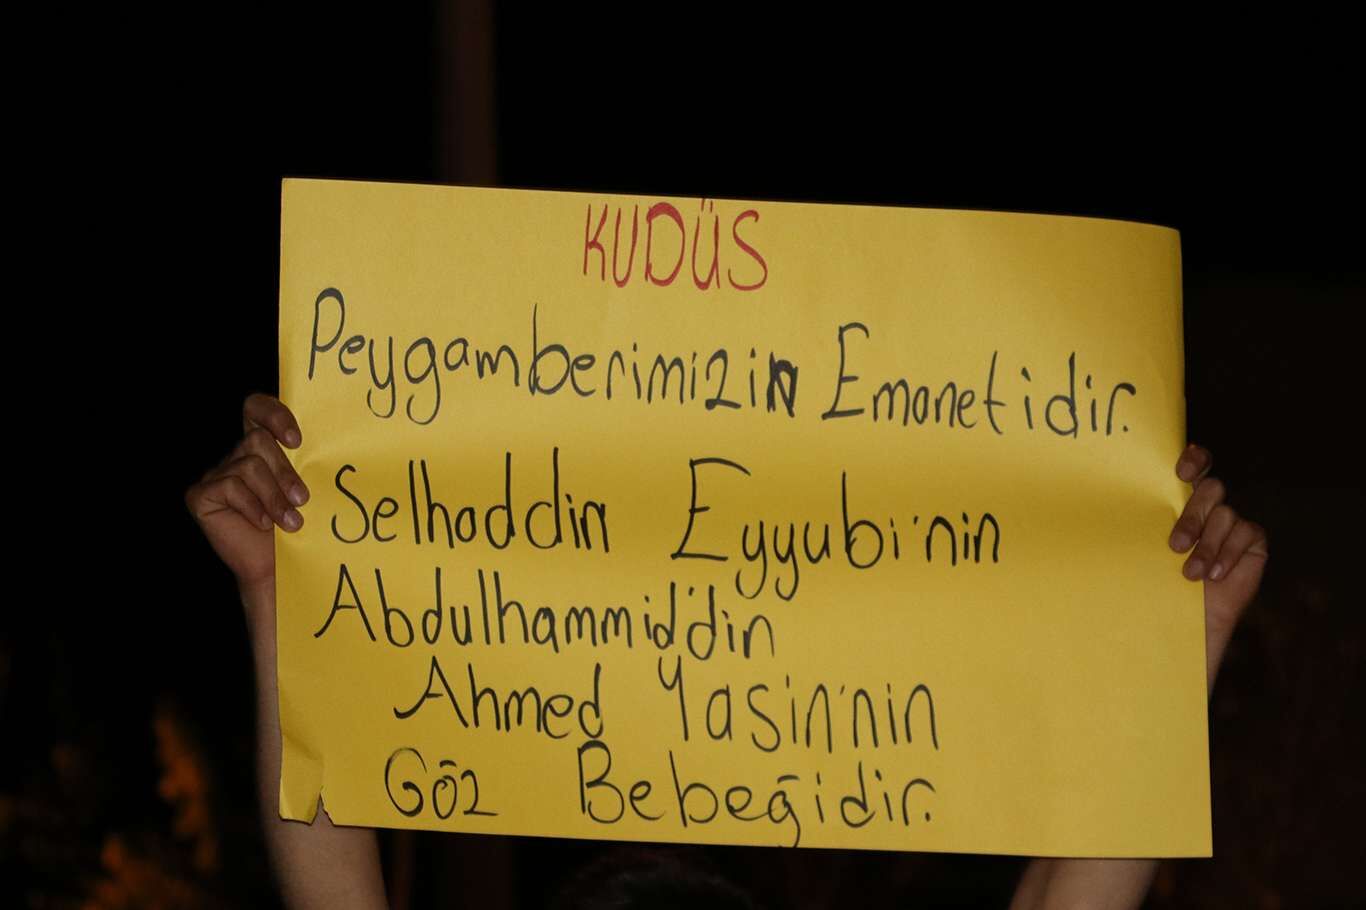 KUDÜS
Peygamberimizin Emanetidir.
Selhaddin Eyyubi'nin
Abdulhammid'din
Ahmed Yasin'nin
Göz Bebeğidir.